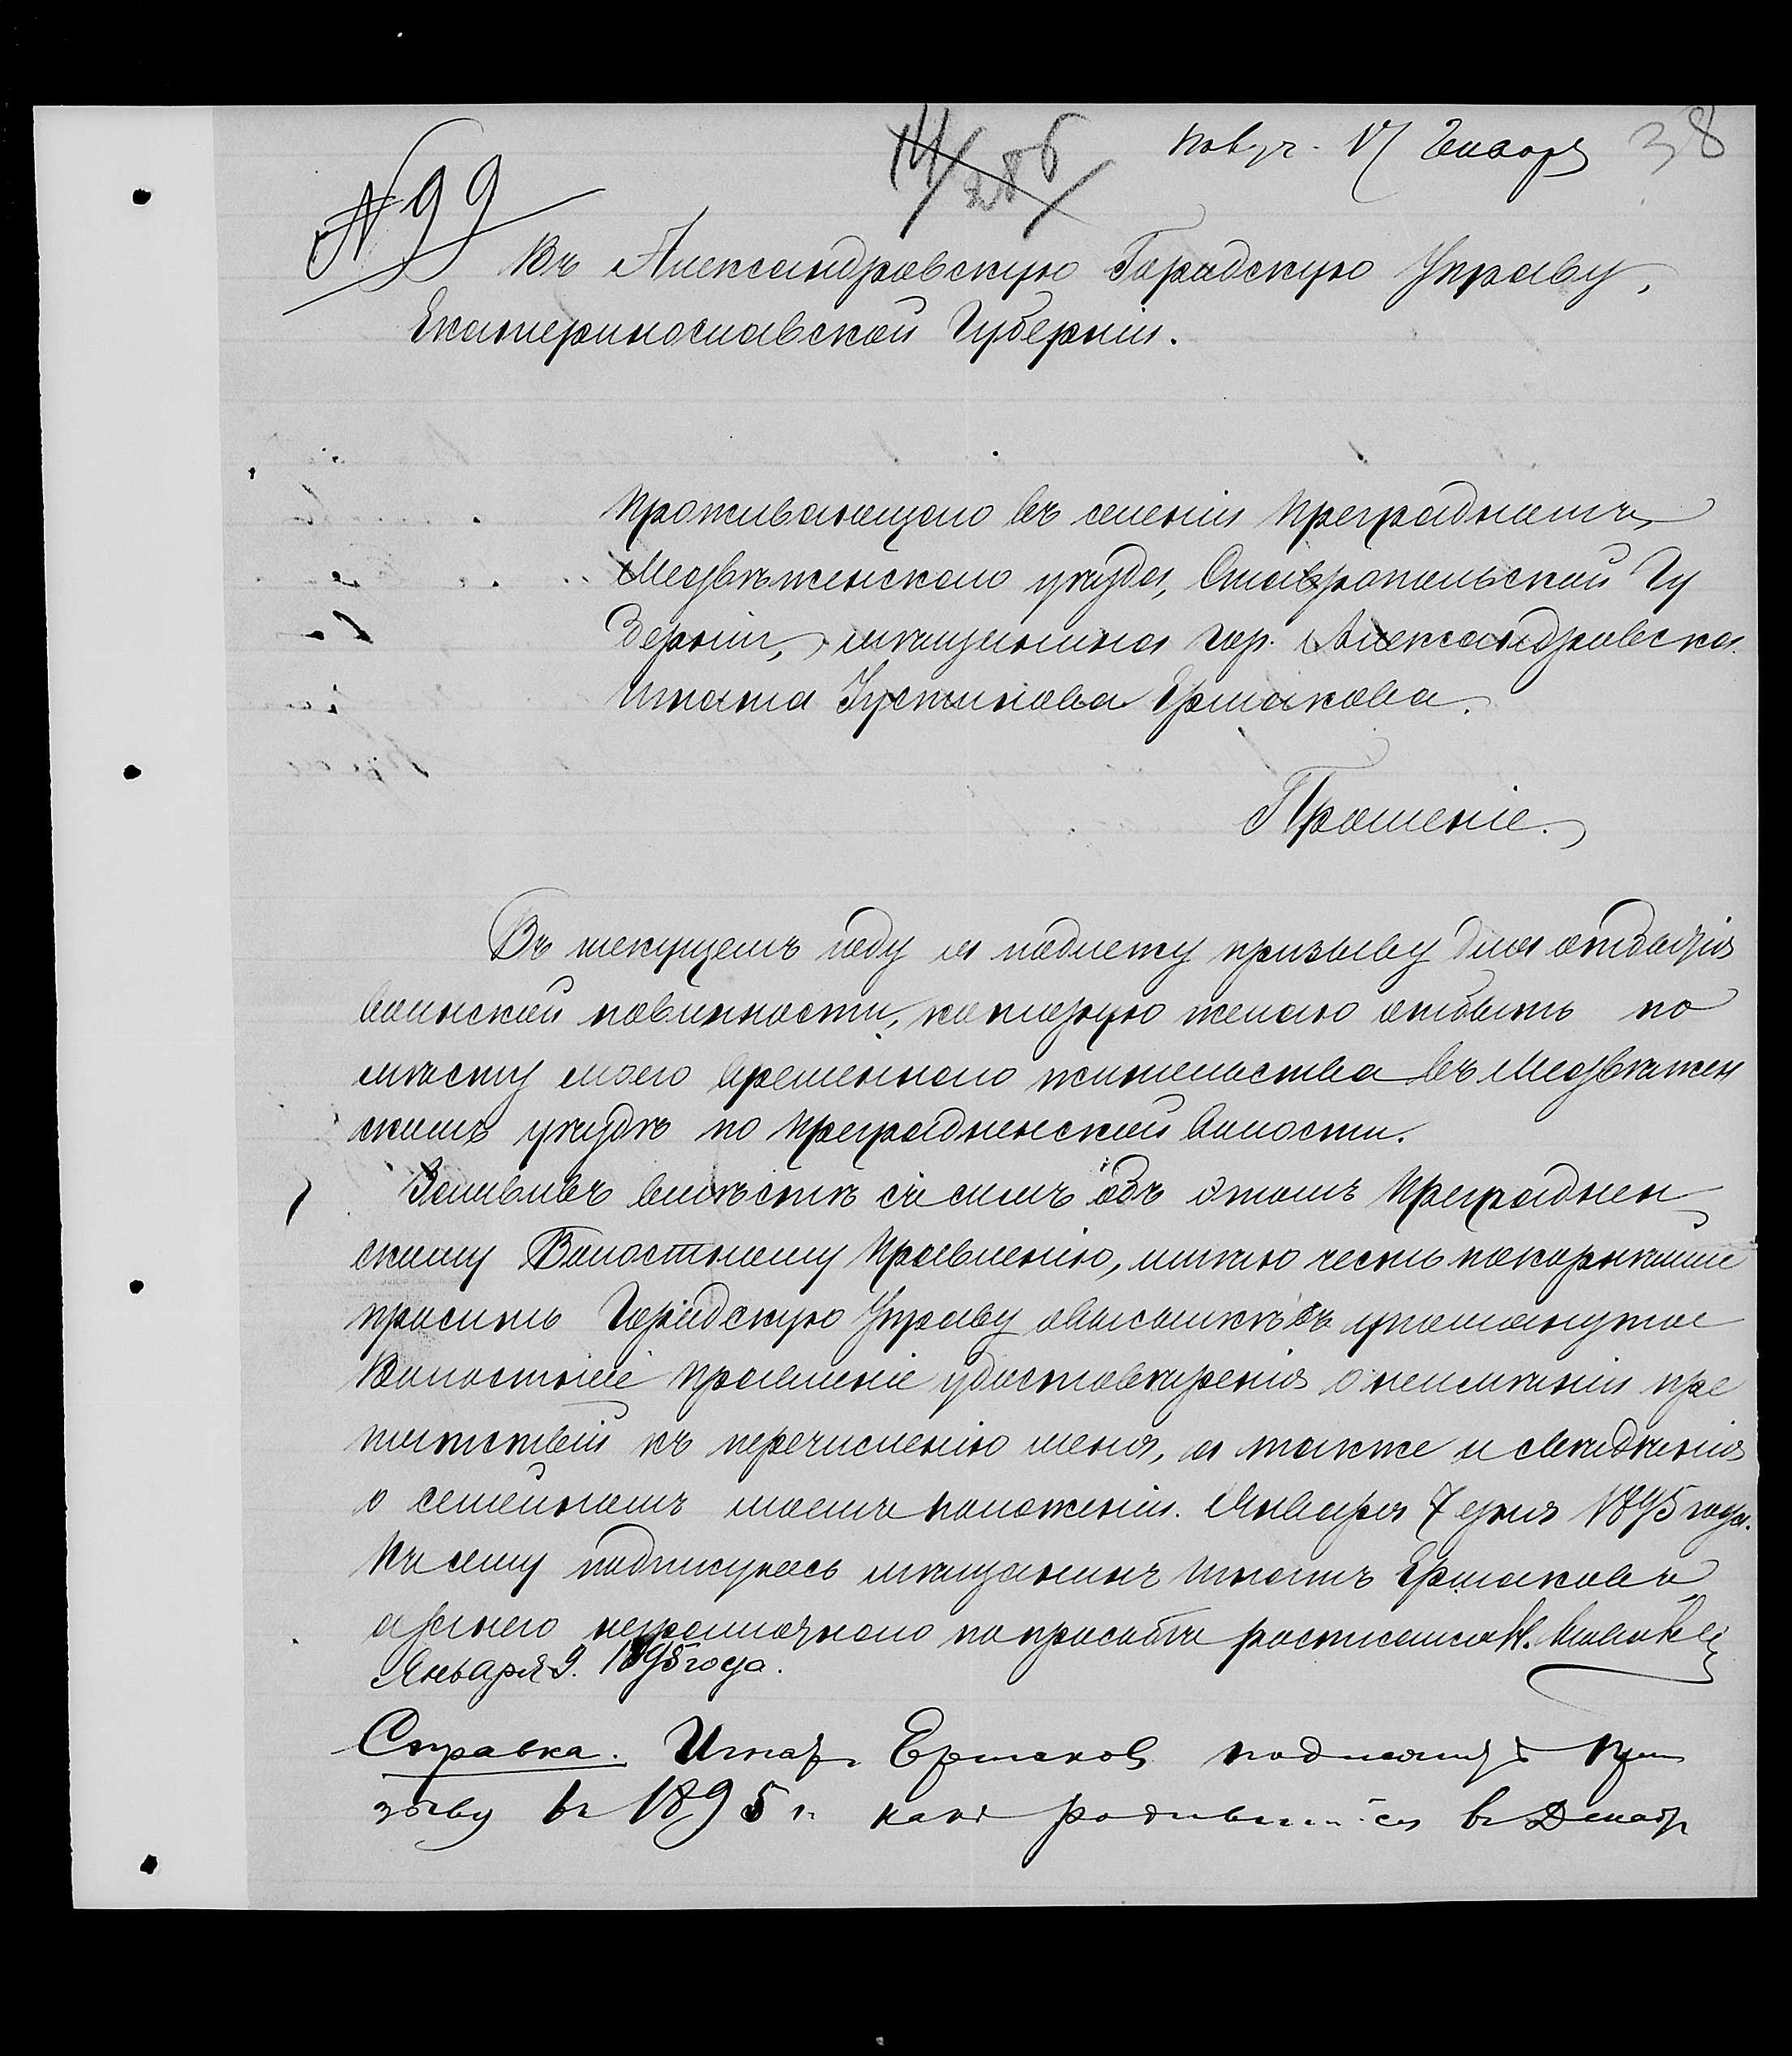 38
14/286
№ 99
Въ Александровскую Городскую Управу,
Екатеринославской Губерніи.
Проживающаго въ селеніи Преградномъ,
Медвѣженскаго уѣзда, Ставропольской Гу
берніи, мѣщанина гор. Александровска
Игната Устинова Ермакова.
Прошеніе.
Въ текущемъ году я подлежу призыву для отбытія
воинской повинности, которую желаю отбыть по
мѣсту моего временнаго жительства въ Медвѣжен
скомъ уѣздѣ по Преградненской волости.
Заявивъ вмѣстѣ съ симъ объ этомъ Преграднен
скому Волостному Правленію, имѣю честь покорнѣйше
просить Городскую Управу о высылкѣ въ упомянутое
Волостное Правленіе удостовѣренія о неимѣніи пре
пятствій къ перечисленію меня, а также и свѣдѣнія
о семейномъ моемъ положеніи. Января 7 дня 1895 года.
Къ сему подпишуясь мѣщанинъ Игнатъ Ермаковъ
а за него неграмотнаго по просьбѣ росписался
Января 9. 1895 года.
Справка. Игнат Ермаков подлежит при
зыву в 1895 г. как родившийся в Декабр